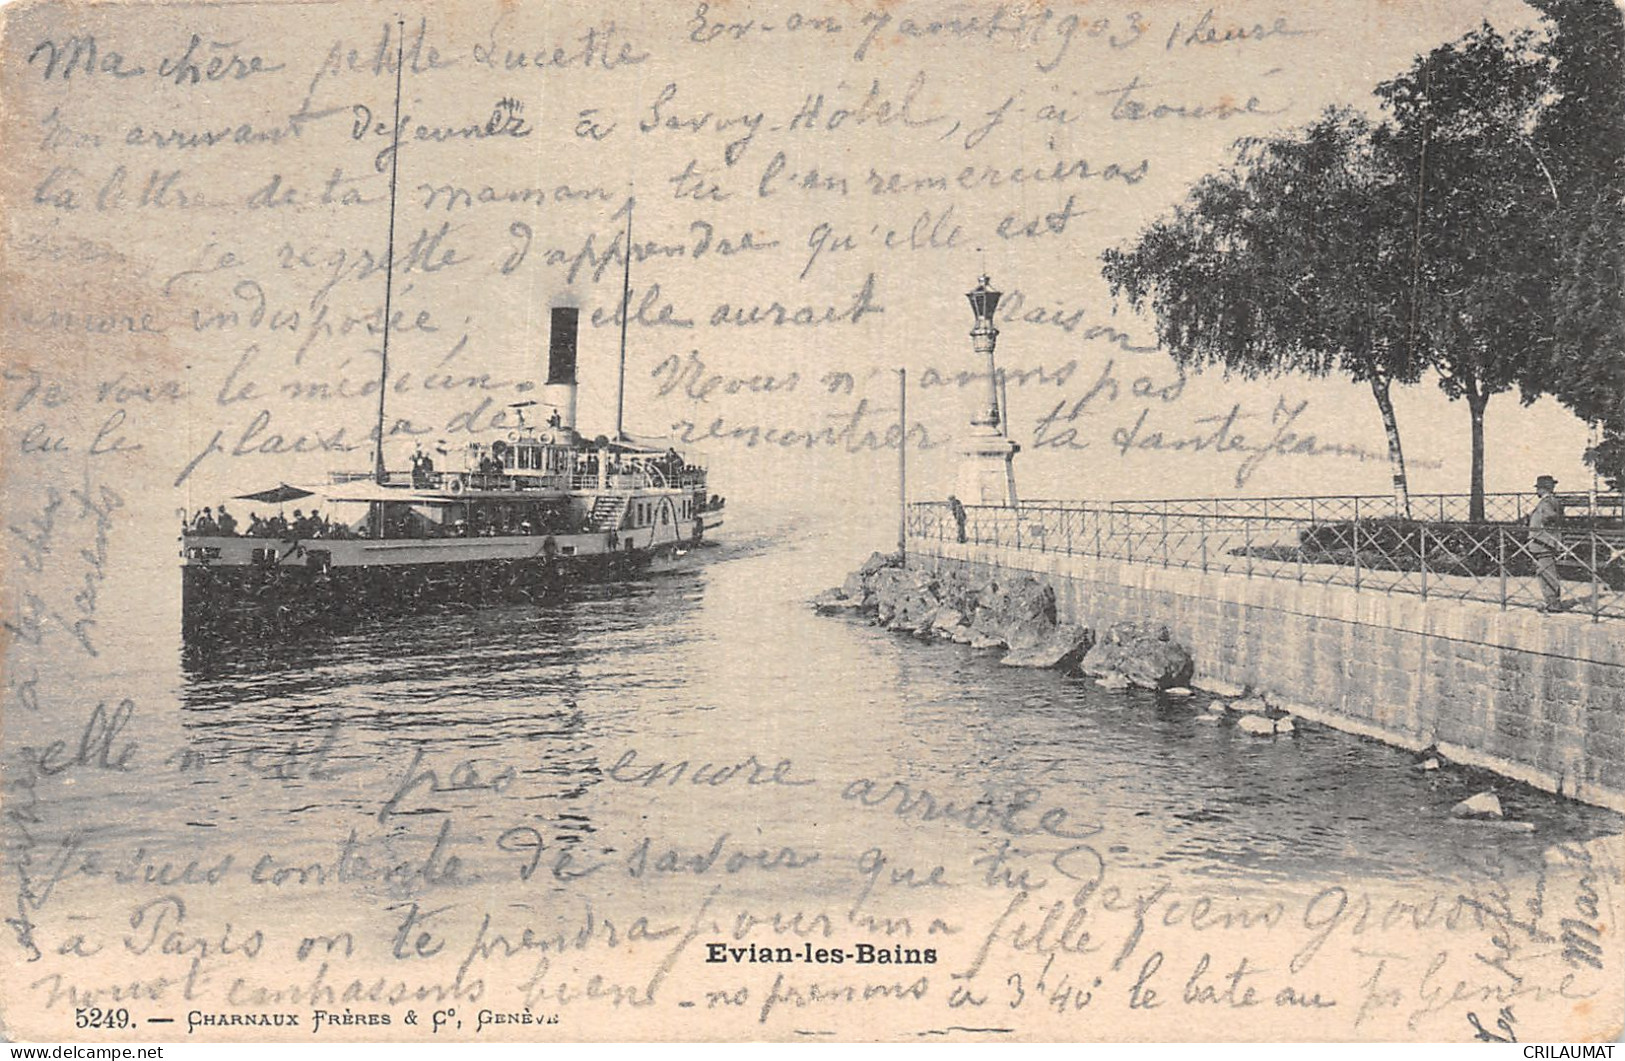 Ev-on 7 août 1903 1 heure
Ma chère petite Lucette
En arrivant déjeuner à Savoy-Hôtel, j'ai trouvé
la lettre de ta maman, tu l'en remercieras
bien, je regrette d'apprendre qu'elle est
encore indisposée, elle aurait raison
de voir le médecin. Nous n'avons pas
eu le plaisir de rencontrer ta tante Jeanne
elle n'est pas encore arrivée
Je suis contente de savoir que tu deviens grosse
à Paris on te prendra pour ma fille
nous t'embrassons bien - ns prenons à 3h 40 le bateau pr Genève
à tes chers
parents
Ta petite
Marie
Evian-les-Bains
5249. — CHARNAUX FRÈRES & Cº, GENÈVE
CRILAUMAT